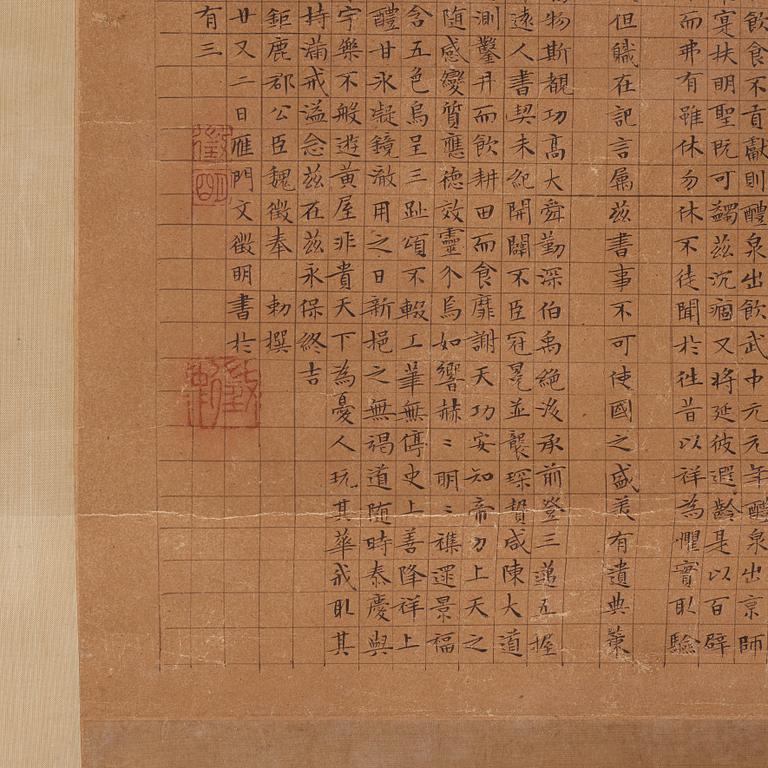 飲食不貢獻則醴泉出飲武中元元年醴泉出京師
寔扶明聖既可蠲茲沉痼又將延彼遐齡是以百辟
而弗有雖休勿休不徒聞於往昔以祥為懼實取驗
但職在記言屬茲書事不可使國之盛美有遺典策
物斯覩功高大舜勤深伯禹絕後承前登三邁五握
遠人書契未紀開闢不臣冠冕並襲琛贄咸陳大道
測鑿井而飲耕田而食靡謝天功安知帝力上天之
随感變質應德效靈介焉如響赫〻明〻襍遝景福
含五色烏呈三趾頌不輟工筆無停史上善降祥上
醴甘水凝鏡澈用之日新挹之無竭道随時泰慶與
宇樂不般遊黃屋非貴天下為憂人玩其華我取其
持滿戒溢念茲在茲永保終吉
鉅鹿郡公臣魏徵奉 勅撰
廿又二日雁門文徵明書於
有三
徵明